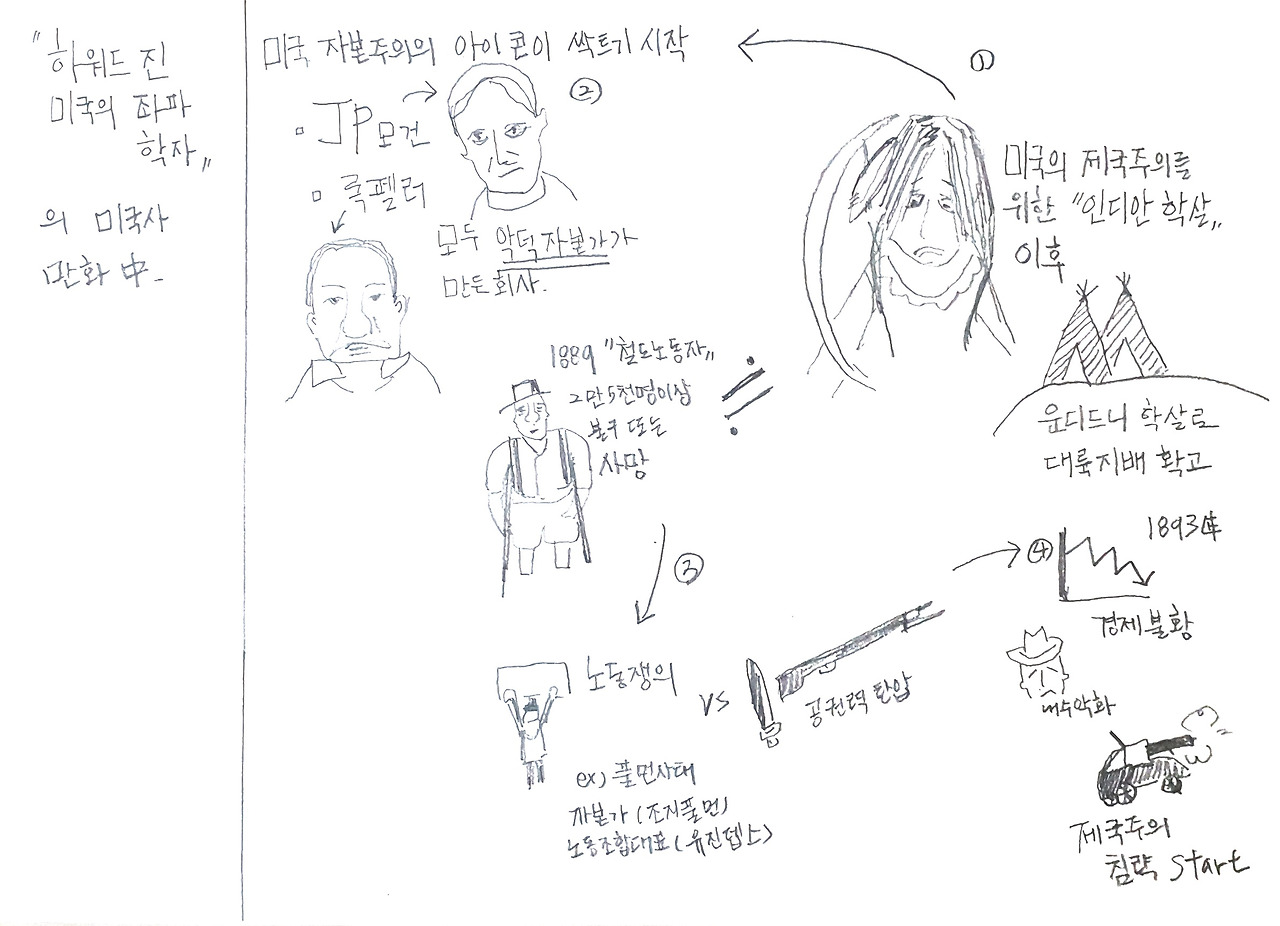 "하워드 진
미국의 좌파
학자"
의 미국사
만화 中.
미국 자본주의의 아이콘이 싹트기 시작
①
미국의 제국주의를
위한 "인디안 학살"
이후
운디드니 학살로
대륙지배 확고
②
▫ JP모건
▫ 록펠러
모두 악덕자본가가
만든회사.
1889 "철도노동자"
2만5천명이상
불구 또는
사망
③
노동쟁의
vs
공권력 탄압
ex) 풀먼사태
자본가 (조지풀먼)
노동조합대표 (유진뎁스)
④
1893年
경제불황
내수악화
제국주의
침략 Start